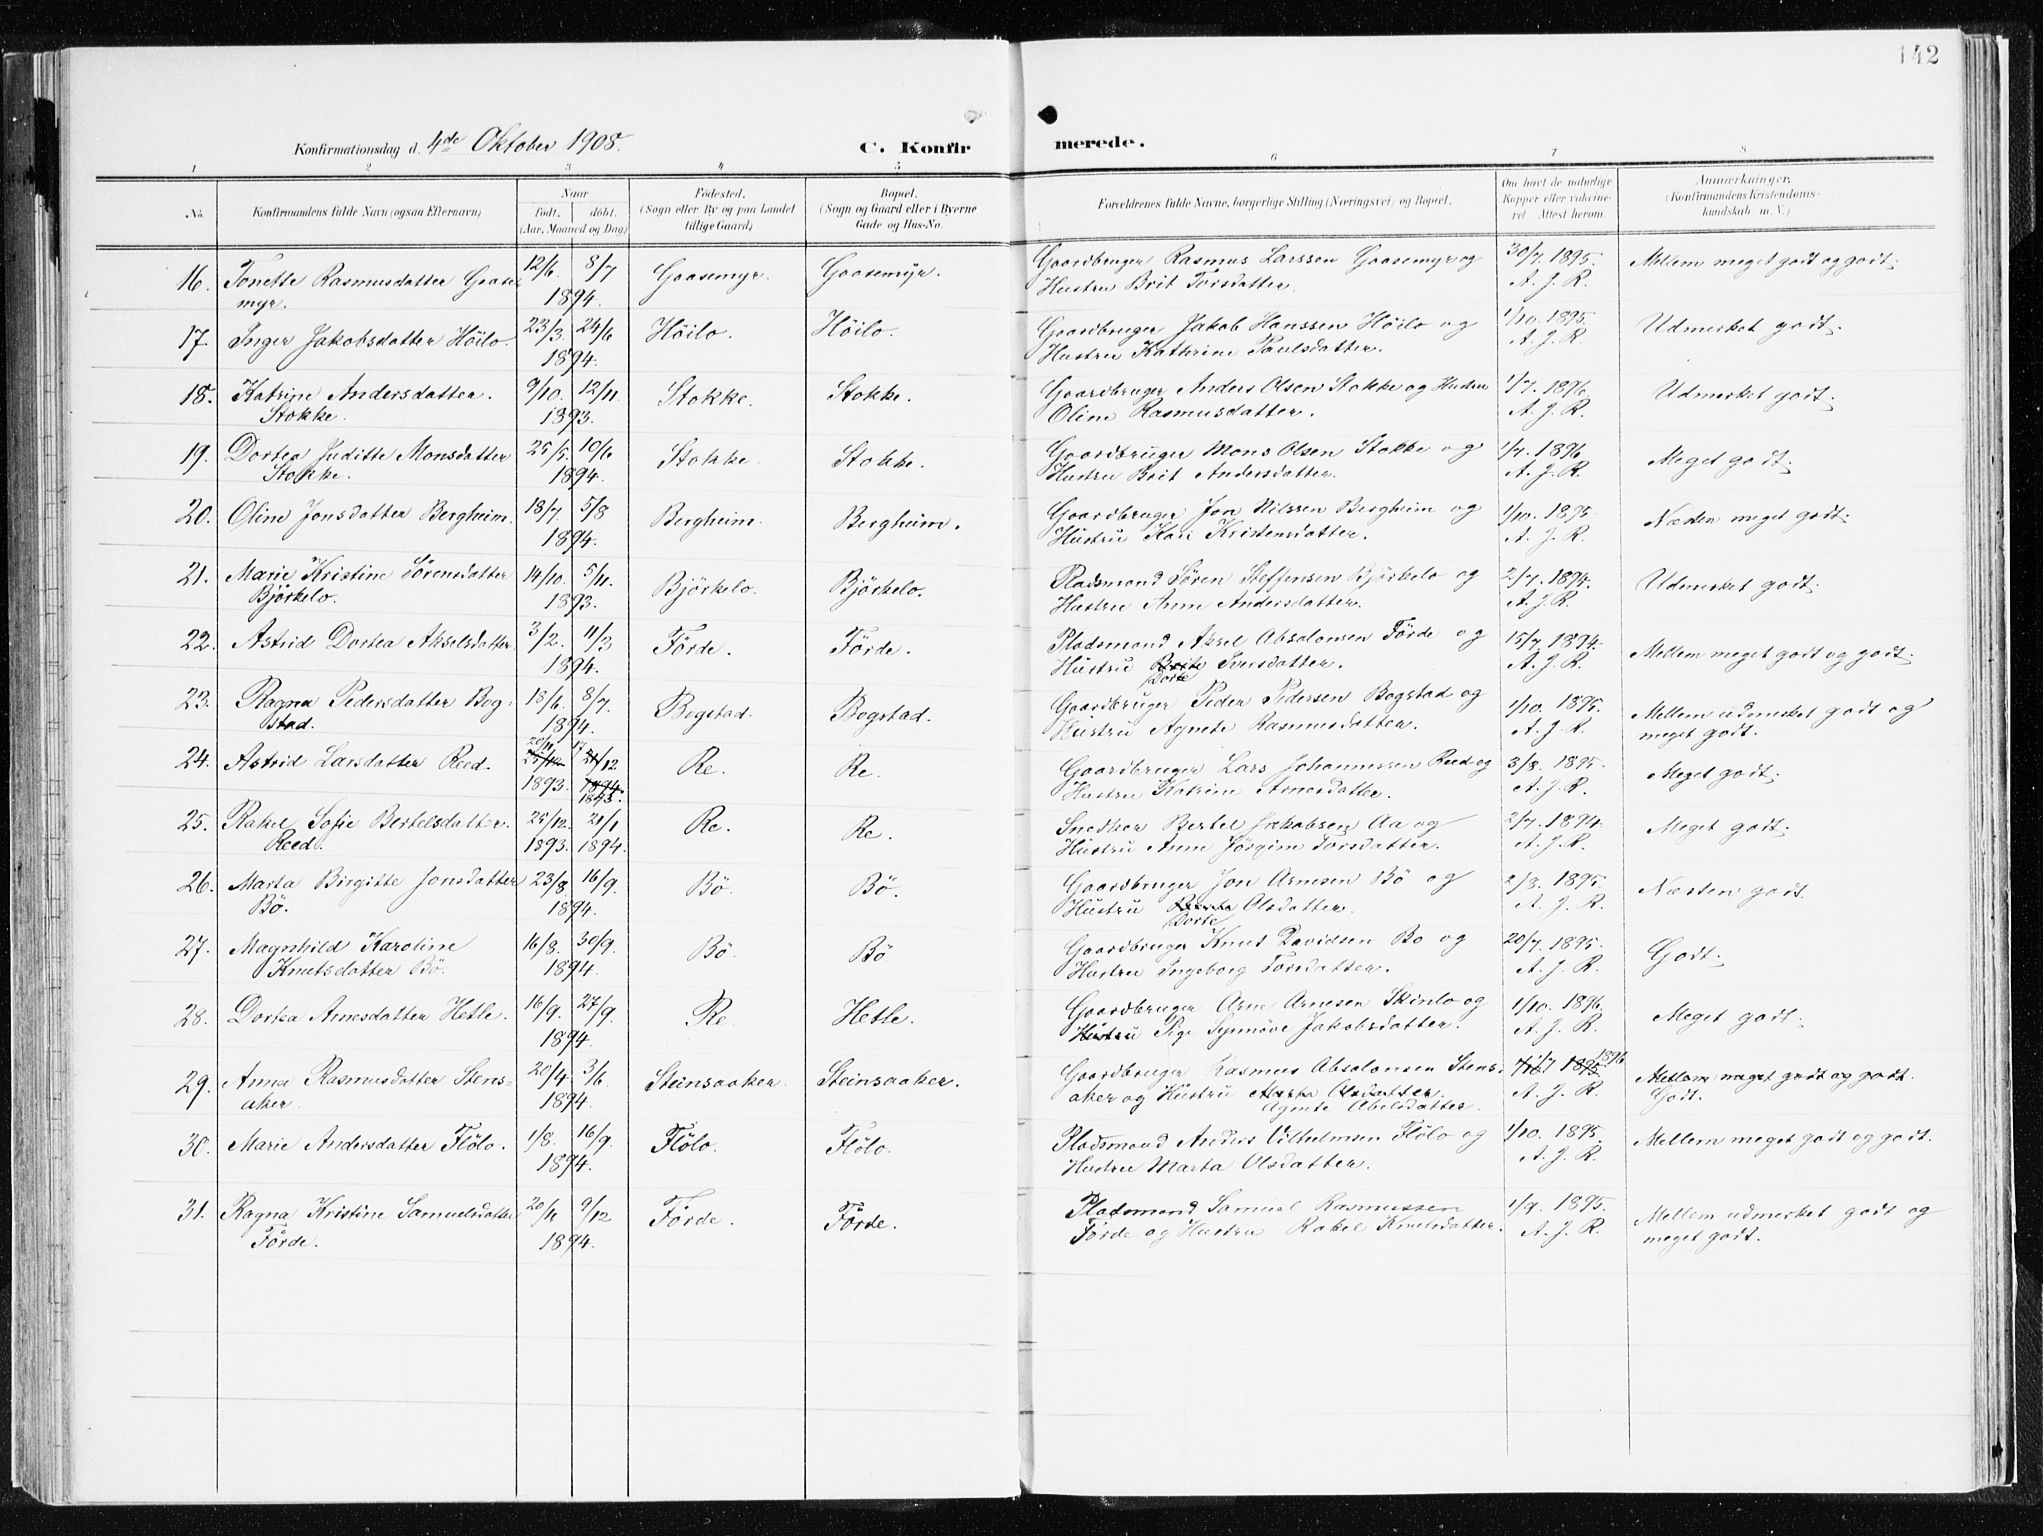 142
Konfirmationsdag d. 4de Oktober 1908.
C. Konfirmerede.
1 2 3 4 5 6 7 8
No. Konfirmandens fulde Navn (ogsaa Efternavn) Naar født. døbt. (Aar, Maaned og Dag) Fødested. (Sogn eller By og paa Landet tillige Gaard) Bopæl. (Sogn og Gaard eller i Byerne Gade og Hus-No. Forældrenes fulde Navne, borgerlige Stilling (Næringsvei) og Bopæl. Om havt de naturlige Kopper eller vakcineret. Attest herom. Anmærkninger. (Konfirmandens Kristendomskundskab m. V.)
16. Tonette Rasmusdatter Gaase- 12/6. 8/7 Gaasemyr. Gaasemyr. Gaardbruger Rasmus Larssen Gaasemyr og 30/7. 1895. Mellem meget godt og godt.
myr. 1894. Hustru Brit Torsdatter. A. J. R.
17. Inger Jakobsdatter Höilo. 23/3. 24/6 Höilo. Höilo. Gaardbruger Jakob Hanssen Höilo og 1/10. 1895. Udmerket godt.
1894. Hustru Kathrine Paulsdatter. A. J. R.
18. Katrine Andersdatter. 9/10. 12/11. Stokke. Stokke. Gaardbruger Anders Olsen Stokke og Hustru 1/7. 1896. Udmerket godt.
Stokke. 1893. Oline Rasmusdatter. A. J. R.
19. Dortea Juditte Monsdatter 25/5. 10/6 Stokke. Stokke. Gaardbruger Mons Olsen Stokke og 1/7. 1896 Meget godt.
Stokke. 1894. Hustru Brit Andersdatter. A. J. R.
20. Oline Jonsdatter Bergheim. 18/7. 5/8 Bergheim. Bergheim. Gaardbruger Jon Nilssen Bergheim og 1/10. 1895. Næsten meget godt.
1894. Hustru Kari Kristensdatter. A. J. R.
21. Marie Kristine Sörensdatter 14/10. 5/11. Björkelo. Björkelo. Pladsmand Sören Steffensen Björkelo og 2/7. 1894. Udmerket godt.
Björkelo. 1893. Hustru Anne Andersdatter. A. J. R.
22. Astrid Dortea Akselsdatter 3/2. 11/3 Förde. Förde. Pladsmand Aksel Absalonsen Förde og 15/7. 1894. Mellem meget godt og godt.
1894. Hustru Brite Iversdatter. A. J. R.
Dorte
23. Ragna Pedersdatter Bog- 18/6. 8/7. Bogstad. Bogstad. Gaardbruger Peder Pedersen Bogstad og 1/10. 1895. Mellem udmerket godt og
stad. 1894. Hustru Agnete Rasmusdatter. A. J. R. meget godt.
24. Astrid Larsdatter Reed. 20/11 17/12 Re. Re. Gaardbruger Lars Johannessen Reed og 3/8. 1895. Meget godt.
1893. 1894. 1893. Hustru Katrine Arnesdatter. A. J. R.
25. Rakel Sofie Bertelsdatter. 25/12. 21/1 Re. Re. Snedker Bertel Jakobsen Aa og 2/7. 1894. Meget godt.
Reed. 1893. 1894. Hustru Anne Jörgine Torsdatter. A. J. R.
26. Marta Birgitte Jonsdatter 23/8. 16/9. Bö. Bö. Gaardbruger Jon Arnesen Bö og 2/8. 1895. Næsten godt.
Bö. 1894. Hustru Olsdatter. A. J. R.
Dorte
27. Magnhild Karoline 16/8. 30/9. Bö. Bö Gaardbruger Knut Davidsen Bö og 20/7. 1895. Godt.
Knutsdatter Bö. 1894. Hustru Ingeborg Torsdatter. A. J. R.
28. Dortea Arnesdatter Hetle. 16/9. 27/9. Re Hetle. Gaardbruger Arne Arnesen Skinlo og 1/10. 1896. Meget godt.
1894. Hustru Pige Synnöve Jakobsdatter. A. J. R.
29. Anna Rasmusdatter Stens- 20/4. 3/6. Steinsaaker. Steinsaaker. Gaardbruger Rasmus Absalonsen Stens- 1/7 1895 1896 Mellem meget godt og godt.
aker. 1894. aker og Hustru Marta Olsdatter. A. J. R. Godt.
Agnete Abelsdatter.
30. Marie Andersdatter Flölo. 1/8. 16/9. Flölo. Flölo. Pladsmand Anders Vilhelmsen Flölo og 1/10. 1895. Mellem meget godt og godt.
1894. Hustru Marta Olsdatter. A. J. R.
31. Ragna Kristine Samuelsdatter 20/11 9/12 Förde. Förde. Pladsmand Samuel Rasmussen 1/9. 1895. Mellem udmerket godt og
Förde. 1894. Förde og Hustru Rakel Knutsdatter. A. J. R. meget godt.